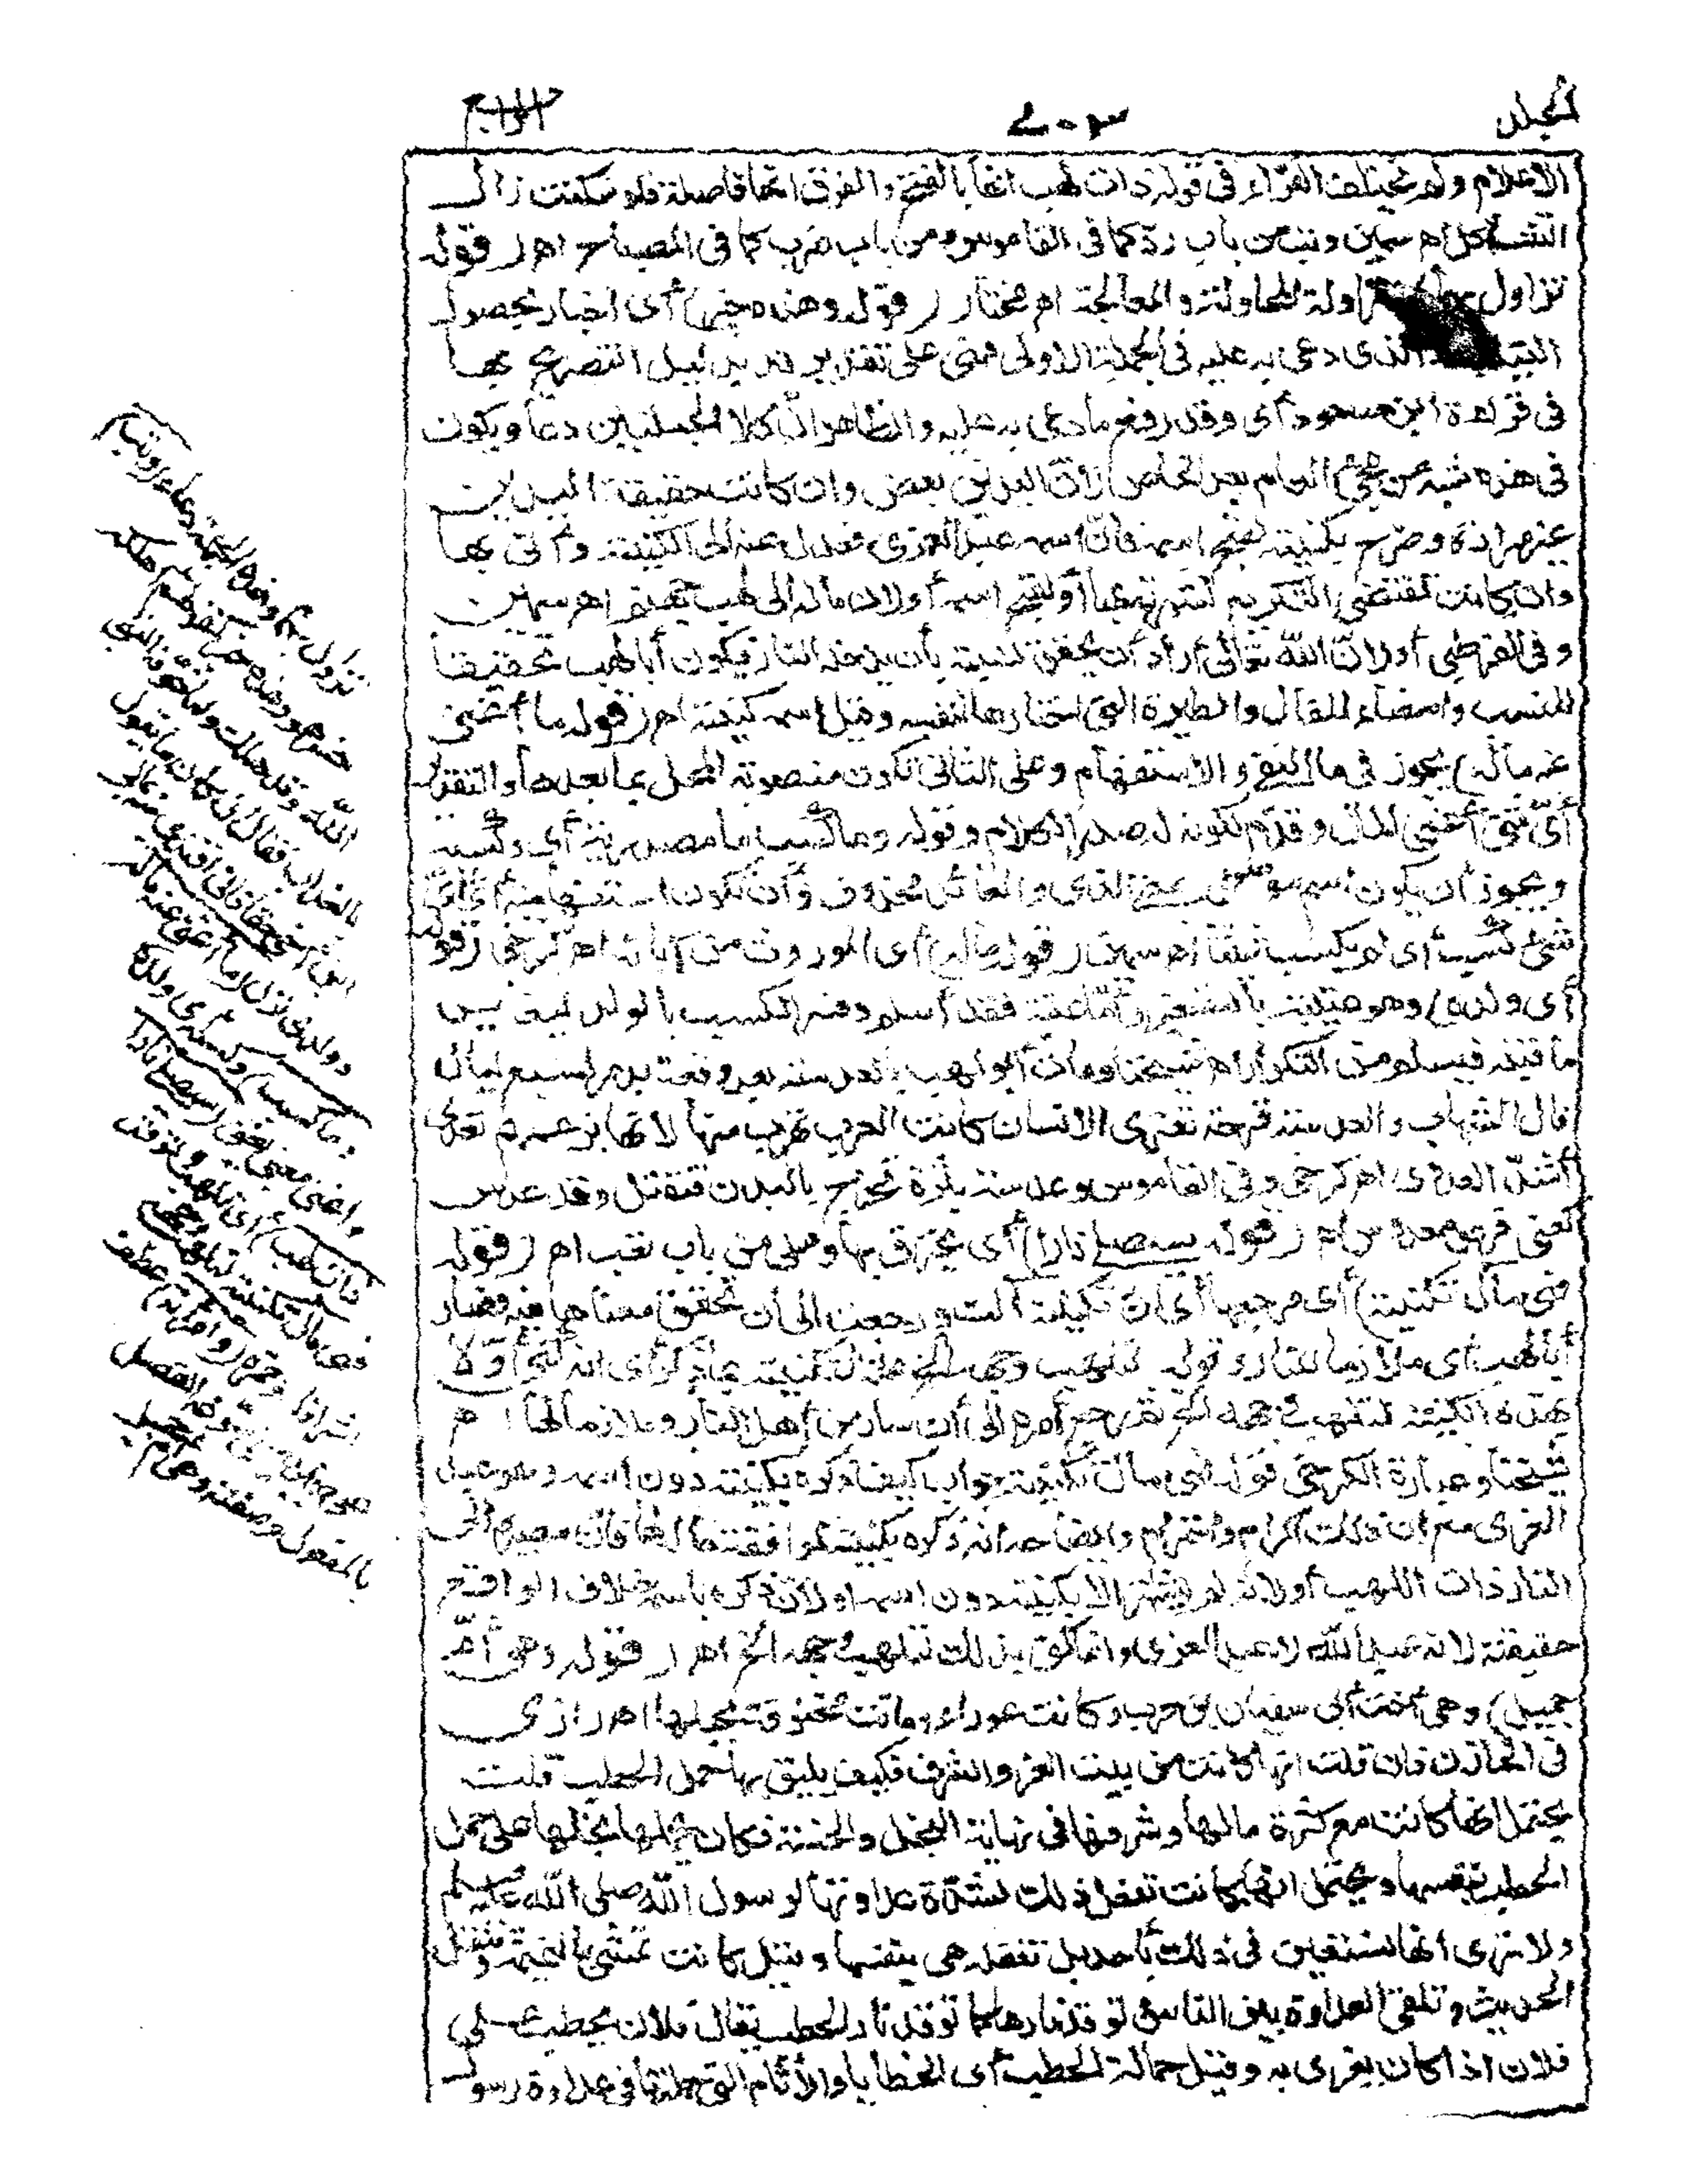 المجلد
٧٠٣
الرابع
الاعلام ولم يختلف القراء في قوله ذات لهب انها بالفتح والفرق انها فاصلة فلو سكنت زال
التشاكل اه سمين وتب من باب ردّ كما في القاموس ومن باب ضرب كما في المصباح اهـ ( قوله
تزاول المحاولة والمعالجة اه مختار ( قوله وهذه خبر) أى اخبار بحصول
الذى دعى به عليه في الجملة الاولى فهى على تقدير قد بدليل التصريح بها
في قراءة ابن مسعود أى وقد وقع ما دعى به عليه والظاهر انّ كلا الجملتين دعا ويكون
في هذه شبه من مجئ العام بعد الخاص لأنّ اليدين بعض وان كانت حقيقة اليدين
غير مرادة وصرح بكنيته لقبح اسمه فانّ اسمه عبد العزى فعدل عنه الى الكنية وأتى بها
وان كانت تقتضى التكريم لشهرته بها أو لقبح اسمه أو لان مآله الى لهب جهنم اهـ سمين
وفي القرطبي أو لانّ الله تعالى أراد أن يحقق نسبته بأن يدخله النار فيكون أبا لهب تحقيقا
للنسب وامضاء للفأل والطيرة التى اختارها لنفسه وقيل اسمه كنيته اهـ ( قوله ما أغنى
عنه ماله) يجوز في ما النفى والاستفهام وعلى الثانى تكون منصوبة المحل بما بعدها والتقدير
أىّ شئ أغنى المال وقدّم لكونه له صدر الكلام وقوله وما كسب ما مصدرية أى وكسبه
ويجوز أن يكون اسم موصول بمعنى الذى والعائد محذوف وأن تكون استفهامية أى أىّ
شئ كسب أى لم يكسب شيئا اه سمين ( قوله ماله) أى الموروث من آبائه اهـ كرخى ( قوله
أى ولده) وهو عتيبة بالتصغير وأمّا عتبة فقد أسلم وفسر الكسب بالولد ليغاير
ما قبله فيسلم من التكرار اه شيخنا ومات أبو لهب بالعدسة بعد وقعة بدر لسبع ليال
قال الشهاب والعدسة قرحة تعترى الانسان كانت العرب تهرب منها لانها بزعمهم تعدى
أشدّ العدوى اهـ كرخى وفي القاموس وعدسة بثرة تخرج بالبدن فتقتل وقد عدس
كعنى فهو معدوس اه ( قوله سيصلى نارا) أى يحترق بها وصلى من باب تعب اهـ ( قوله
فهى مآل تكنيته) أى مرجعها أى ان تكنيته آلت ورجعت الى أن تحقق معناها فيه فصار
أبا لهب أى ملازما للنار وقوله لتلهب وجهه الخ علة لتكنيته بما ذكر أى انه كنى أوّلا
بهذه الكنية لتلهب وجهه الخ ثم رجع أمره الى أن سار من أهل النار وملازما لها اه
شيخنا وعبارة الكرخى قوله فهى مآل تكنيته جواب كيف ذكره بكنيته دون اسمه وهو عبد
العزى مع ان ذلك اكرام واحترام وايضاحه انه ذكره بكنيته لموافقتها حاله فان مصيره الى
النار ذات اللهب أو لانه لم يشتهر الا بكنيته دون اسمه أو لان ذكره باسمه خلاف الواقع
حقيقة لانه عبد الله لا عبد العزى وانما كنى بذلك لتلهب وجهه الخ اهـ ( قوله وهى أمّ
جميل) وهى أخت أبى سفيان بن حرب وكانت عوراء وماتت مخنوقة بحبلها اهـ رازى
في الخازن فان قلت انها كانت من بيت العز والشرف فكيف يليق بها حمل الحطب قلت
يحتمل انها كانت مع كثرة مالها وشرفها في نهاية البخل والخسة فكان يحملها بخلها على حمل
الحطب بنفسها ويحتمل انها كانت تفعل ذلك لشدّة عداوتها لرسول الله صلى الله عليه وسلم
ولا ترى انها تستعين في ذلك بأحد بل تفعله هى بنفسها وقيل كانت تمشى بالنميمة وتنقل
الحديث وتلقى العداوة بين الناس توقد نارها كما توقد نار الحطب يقال فلان يحطب على
فلان اذا كان يغرى به وقيل حمالة الحطب أى الخطايا والآثام التى حملتها في عداوة رسول
تزاول بهما وهذه الجملة دعاء (وتب)
خسر هو وهذه خبر كقولهم أهلكه
الله وقد هلك ولما خوّفه النبى
بالعذاب فقال ان كان ما يقول
ابن أخى حقا فانى أفتدى منه بمالى
وولدى نزل (ما أغنى عنه ماله
وما كسب) وكسبه أى ولده
وأغنى بمعنى يغنى (سيصلى نارا
ذات لهب) أى تلهب وتوقد
فهى مآل تكنيته لتلهب وجهه
اشراقا وحمرة (وامرأته) عطف
على ضمير يصلى سوّغه الفصل
بالمفعول وصفته وهى أم جميل